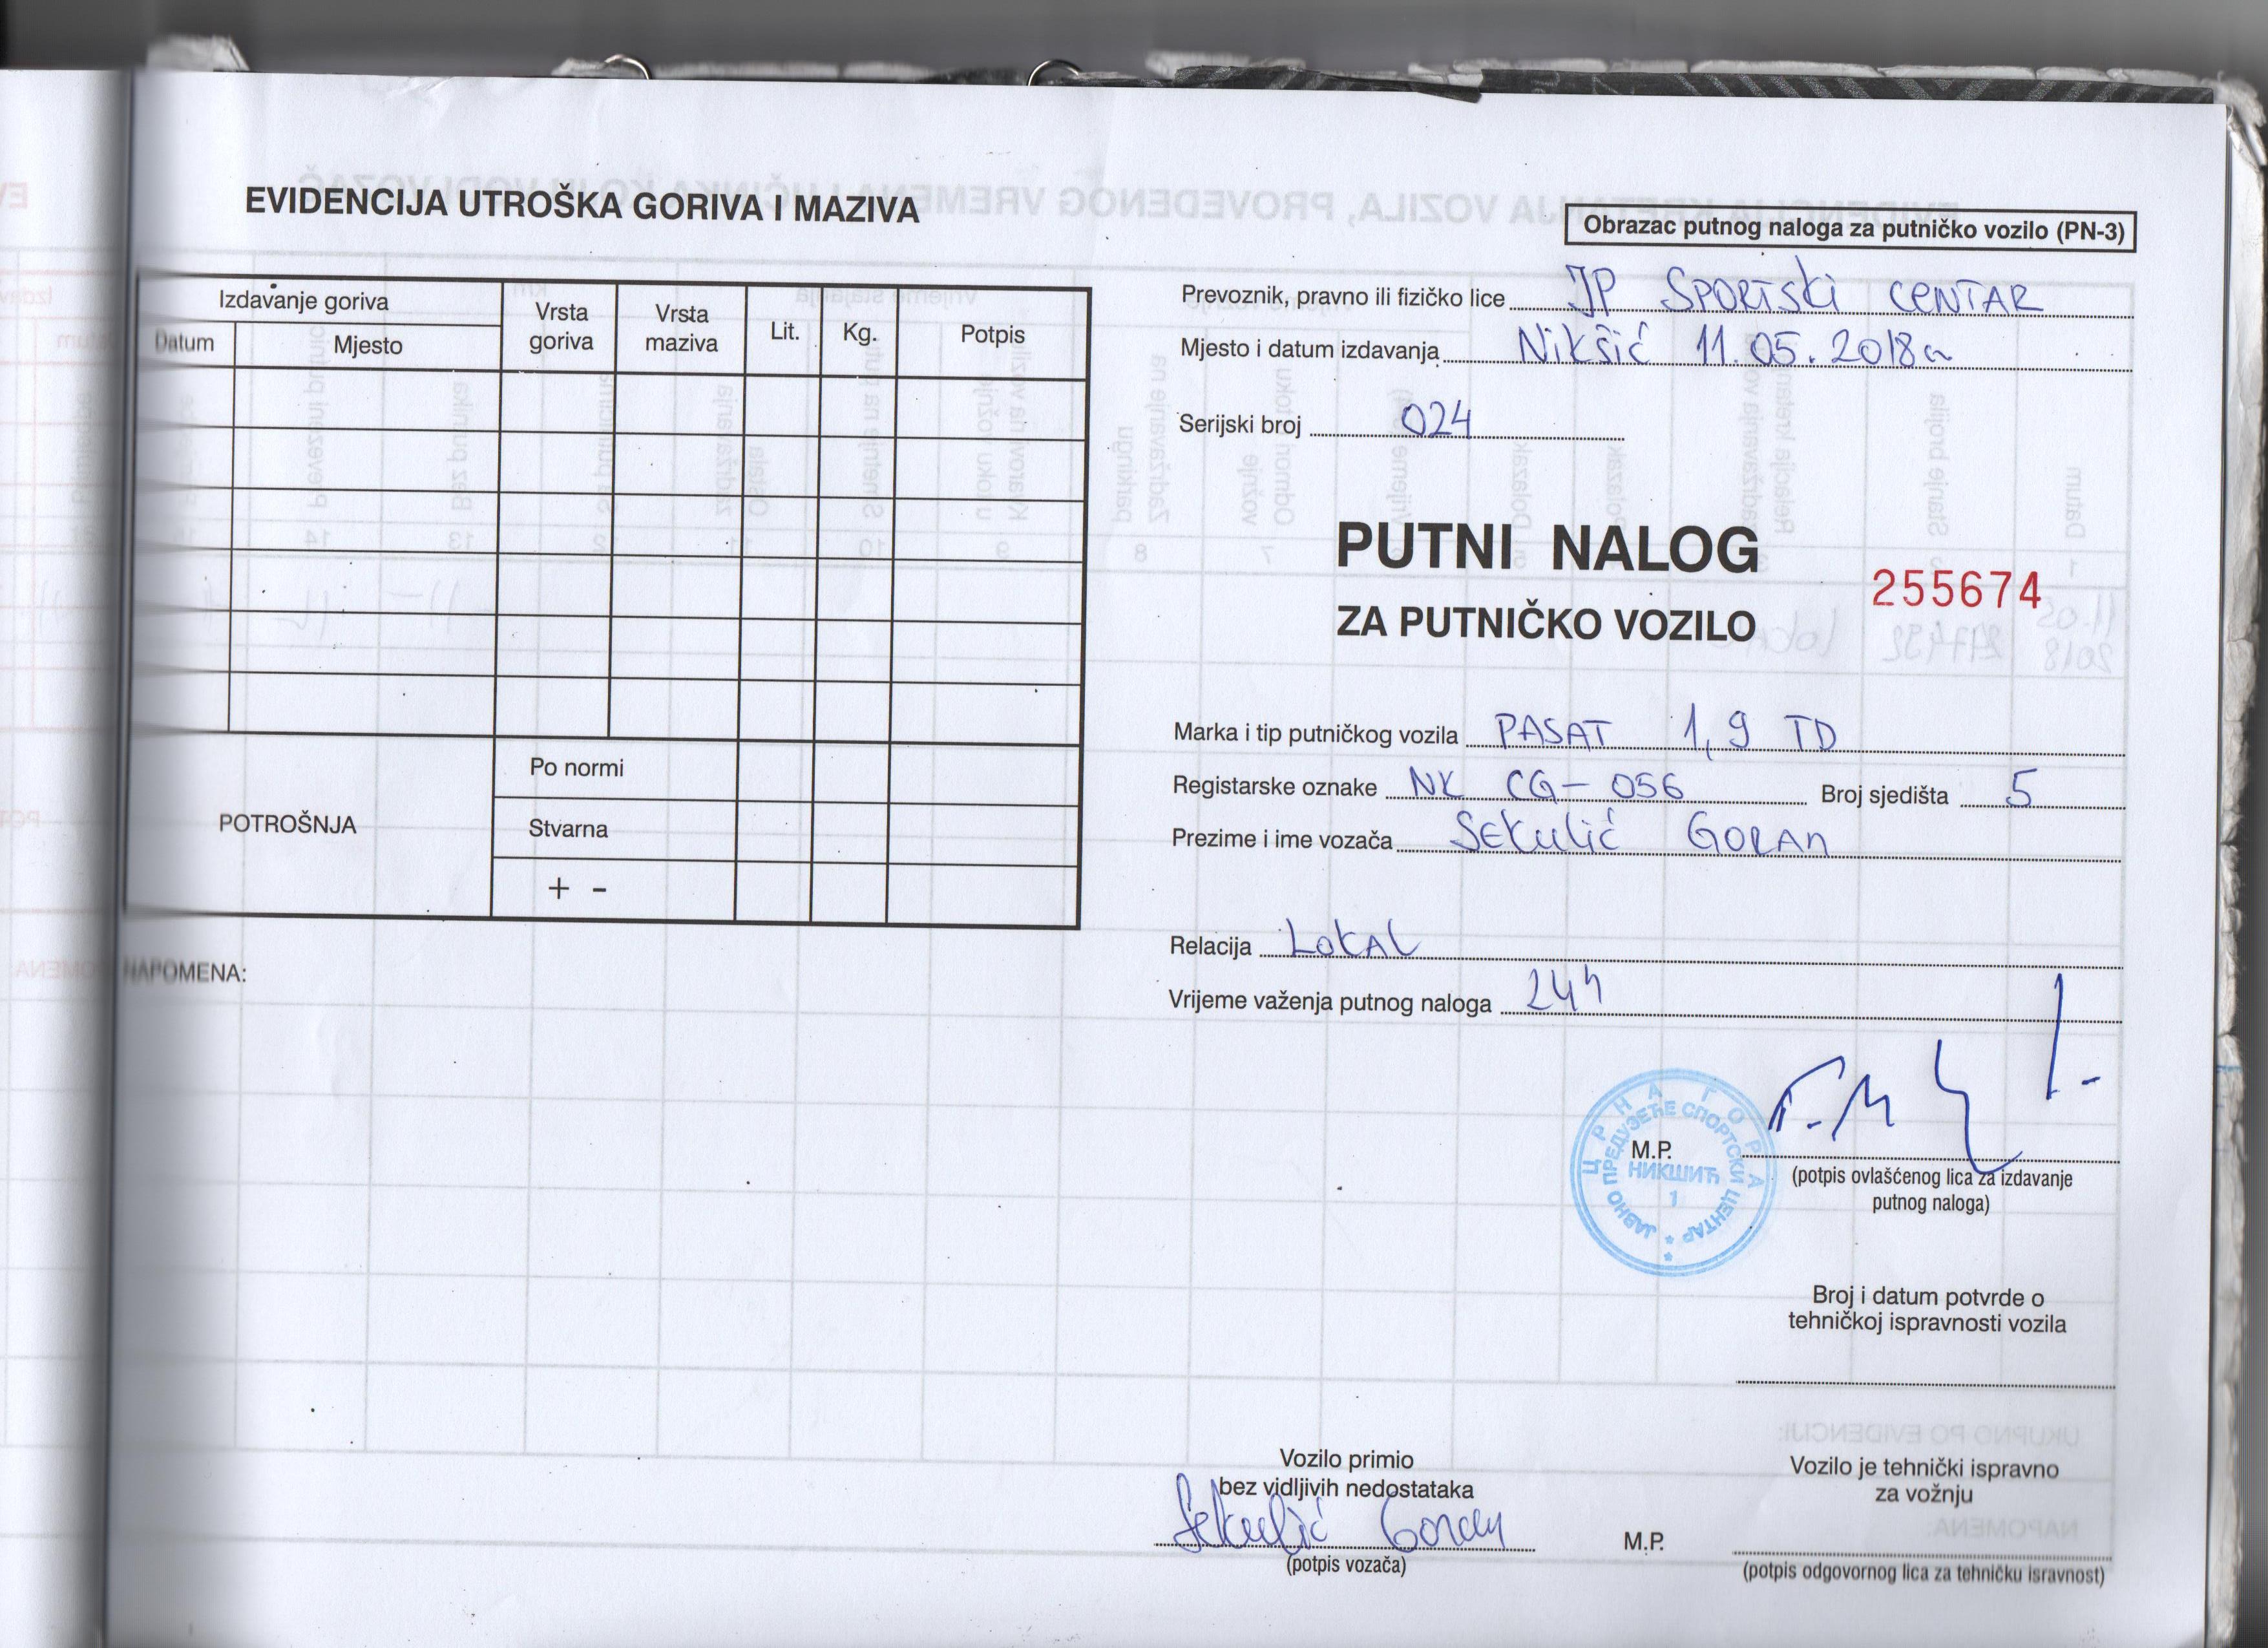 EVIDENCIJA UTROŠKA GORIVA I MAZIVA
Izdavanje goriva
Datum
Mjesto
Vrsta goriva
Vrsta maziva
Lit.
Kg.
Potpis
POTROŠNJA
Po normi
Stvarna
+ -
NAPOMENA:
Obrazac putnog naloga za putničko vozilo (PN-3)
Prevoznik, pravno ili fizičko lice JP SPORTSKI CENTAR
Mjesto i datum izdavanja Nikšić 11.05.2018
Serijski broj 024
PUTNI NALOG
255674
ZA PUTNIČKO VOZILO
Marka i tip putničkog vozila PASAT 1,9 TD
Registarske oznake NK CG-056 Broj sjedišta 5
Prezime i ime vozača Sekulić Goran
Relacija Lokal
Vrijeme važenja putnog naloga 24h
ЦРНА ГОРА
ЈАВНО ПРЕДУЗЕЋЕ СПОРТСКИ ЦЕНТАР
НИКШИЋ
1
M.P.
(potpis ovlašćenog lica za izdavanje
putnog naloga)
Broj i datum potvrde o
tehničkoj ispravnosti vozila
Vozilo primio
bez vidljivih nedostataka
Sekulić Goran
(potpis vozača)
Vozilo je tehnički ispravno
za vožnju
M.P.
(potpis odgovornog lica za tehničku isravnost)